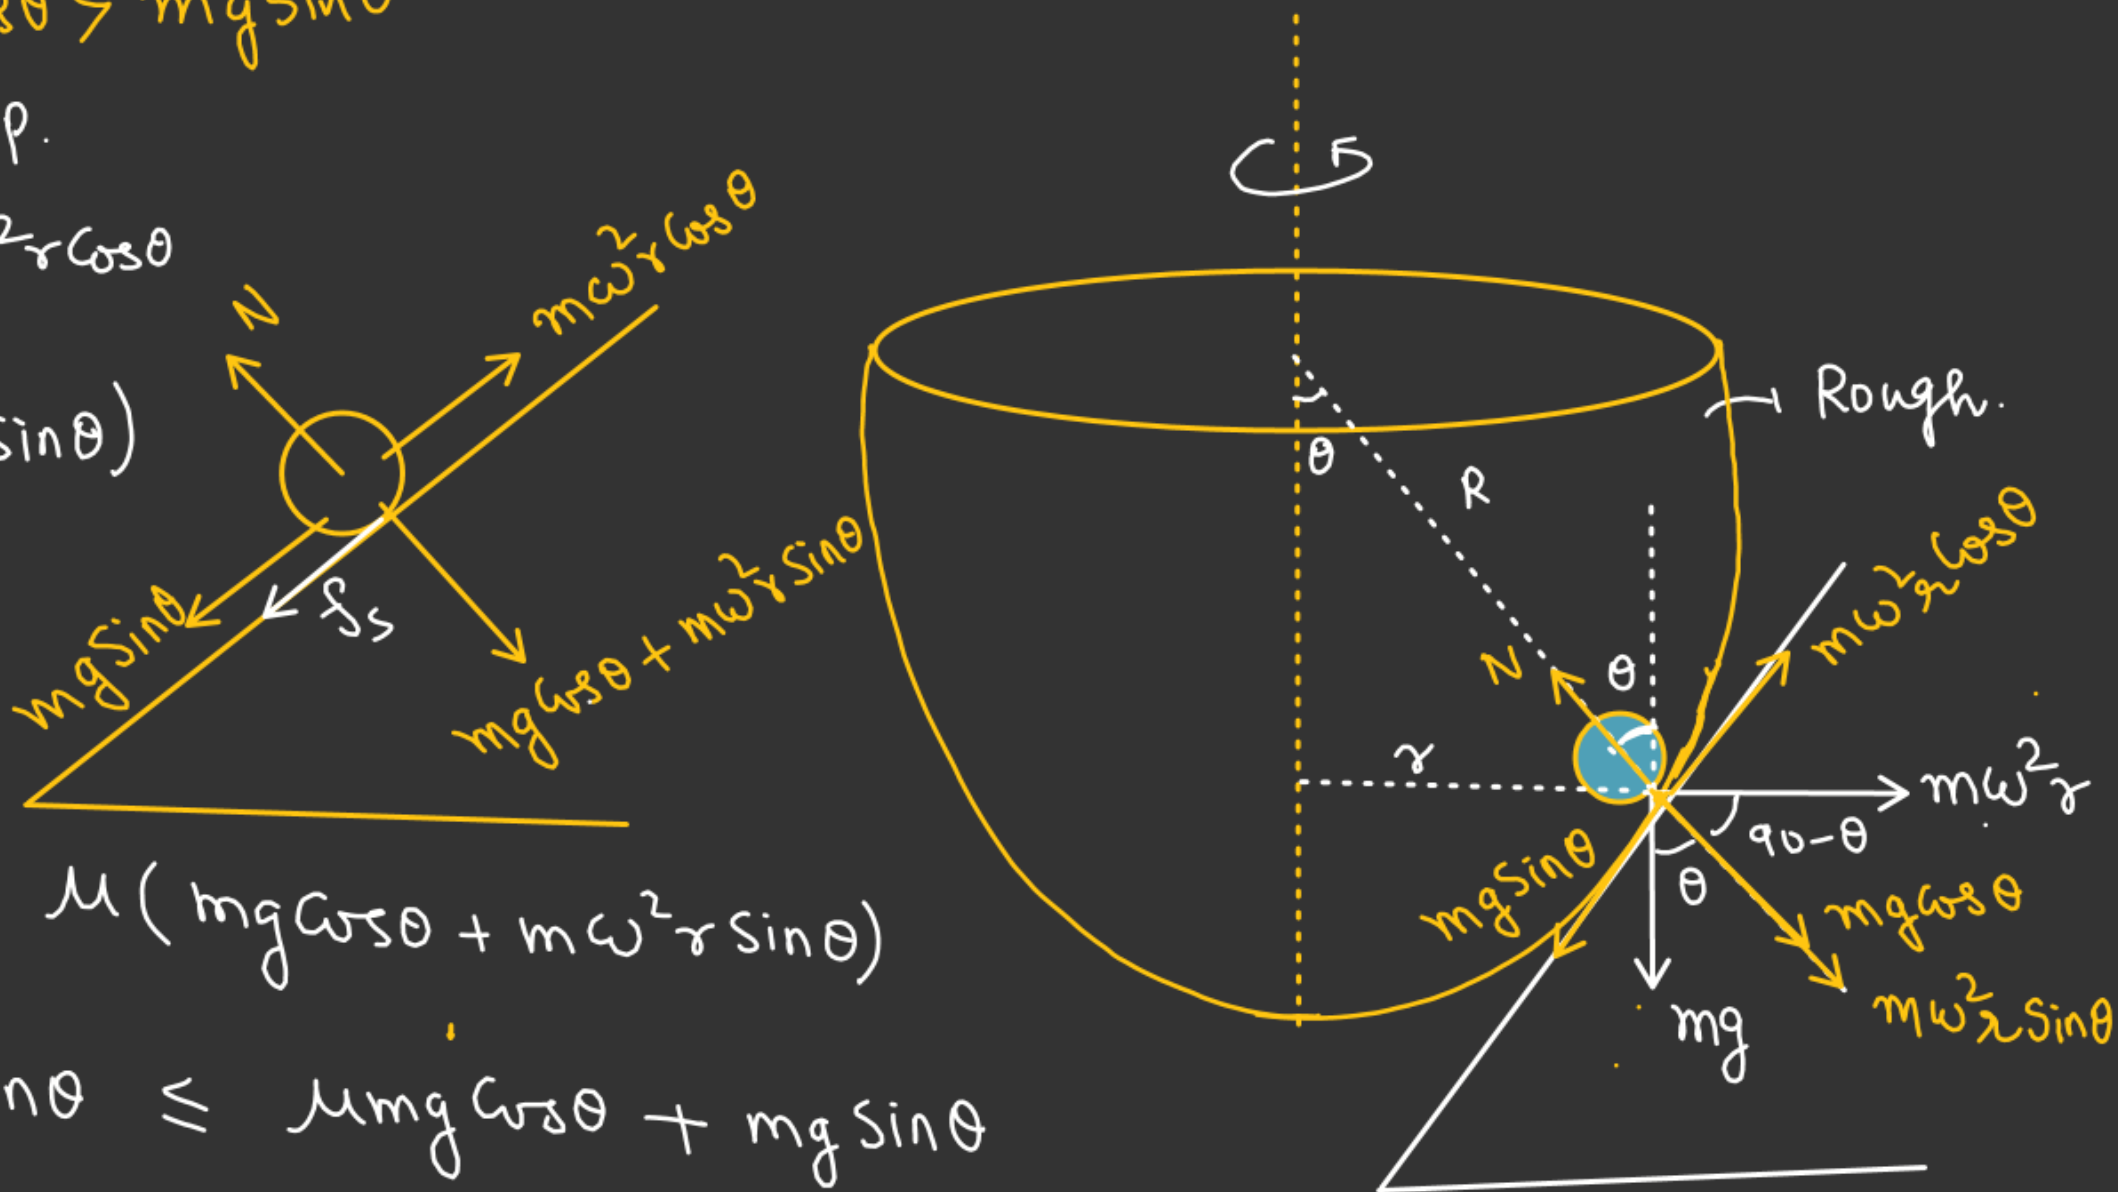 sθ > mg sinθ
p.
²r Cosθ
N
mω²r Cosθ
sinθ)
mg Sinθ
fs
mg Cosθ + mω²r Sinθ
μ ( mg Cosθ + mω²r Sinθ )
nθ ≤ μmg Cosθ + mg Sinθ
θ
R
Rough.
N
θ
mω²r Cosθ
r
mω²r
90-θ
mg Sinθ
θ
mg Cosθ
mω²r Sinθ
mg